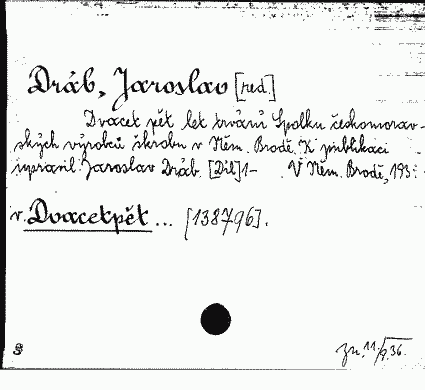 Dráb, Jaroslav [red]
Dvacet pět let trvání Spolku českomorav-
ských výrobců škrobu v Něm. Brodě. K publikaci
upravil Jaroslav Dráb. [Díl] 1- . V Něm. Brodě, 193
v. Dvacetpět ... [138796].
zn. 11/9.36.